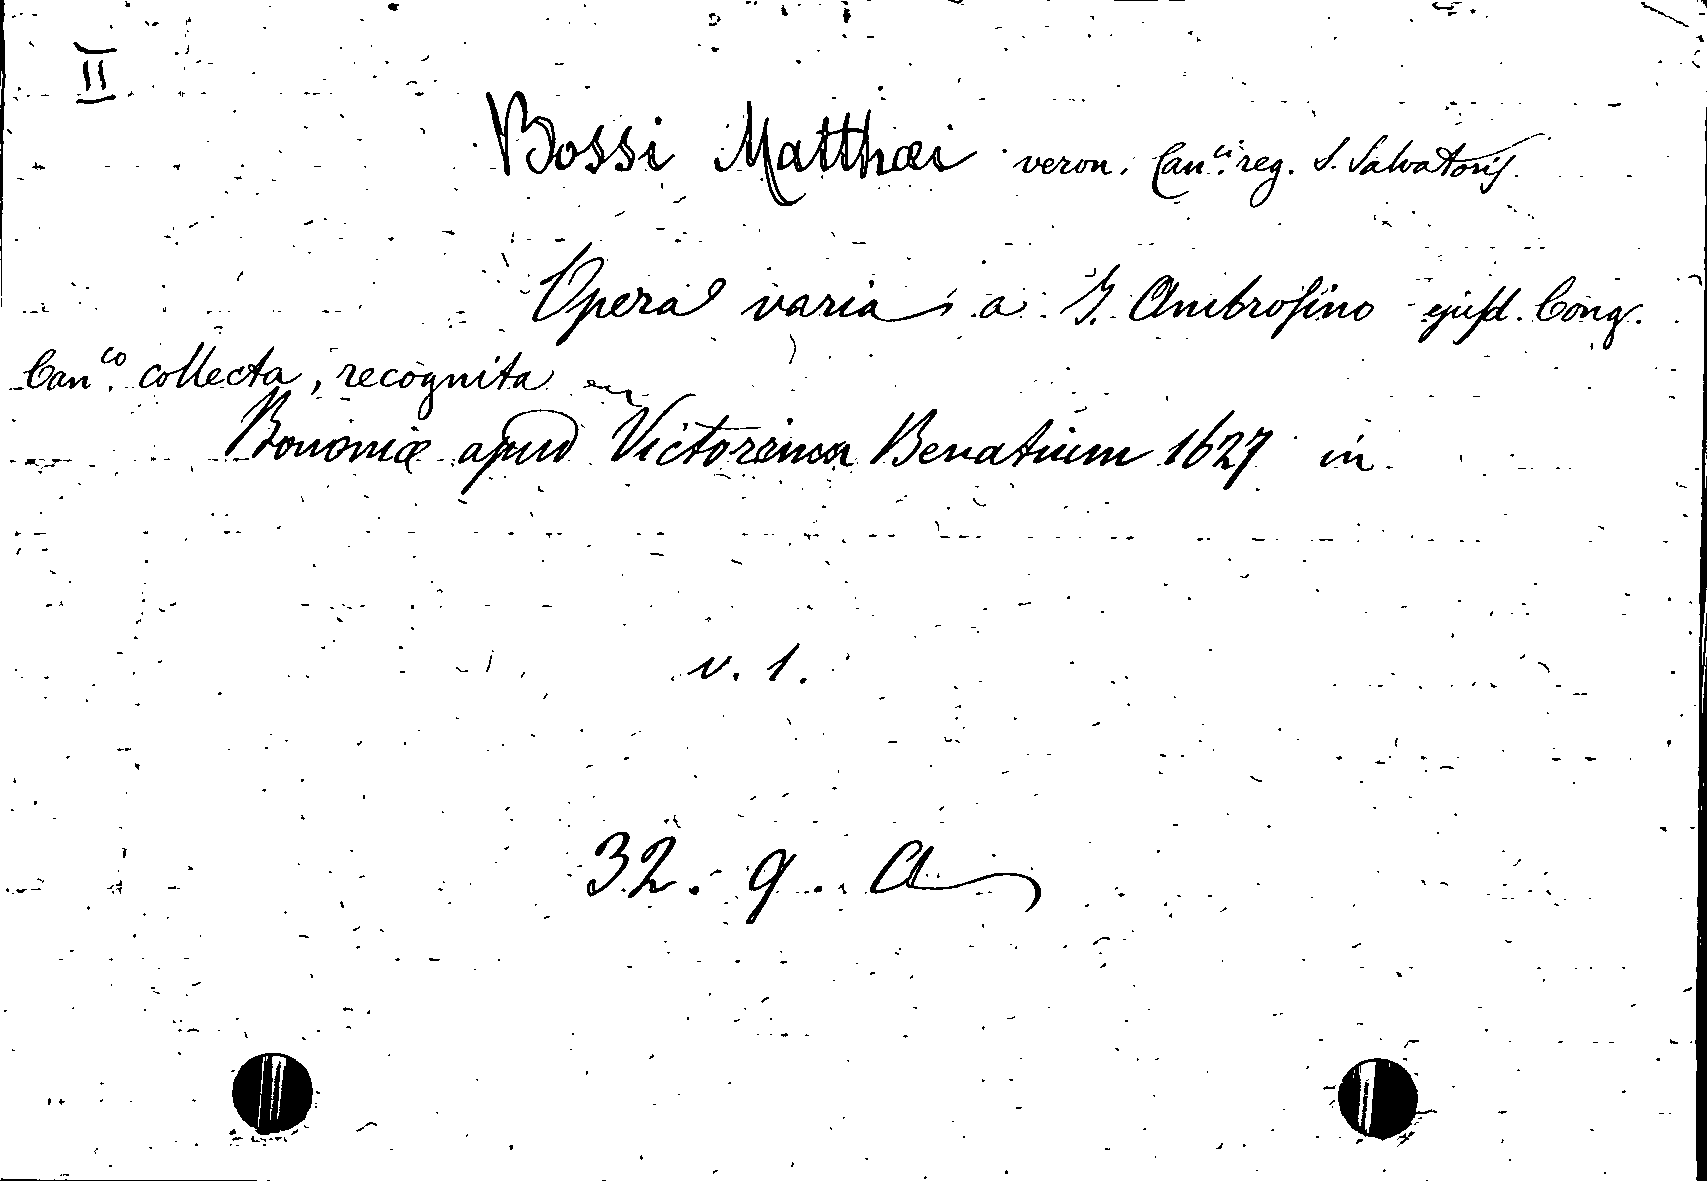 II
Bossi Matthæi veron. Can.ci reg. S. Salvatoris.
Opera varia a J. Ambrosino ejusd. Cong.
Can.co collecta, recognita
Bononiæ apud Victorium Benatium 1627 in
v. 1.
32. q. A